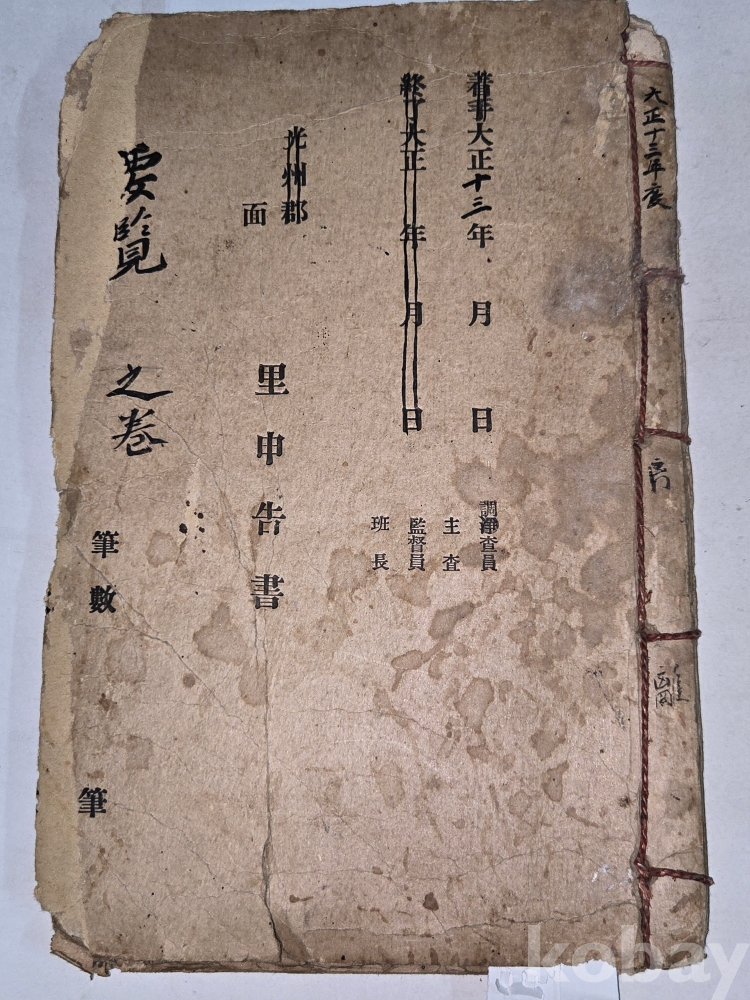 大正十三年度
着手大正十三年 月 日
終了大正 年 月 日
調査員
主査
監督員
班長
光州郡
面
里申告書
要覧 之巻
筆數 筆
kobay